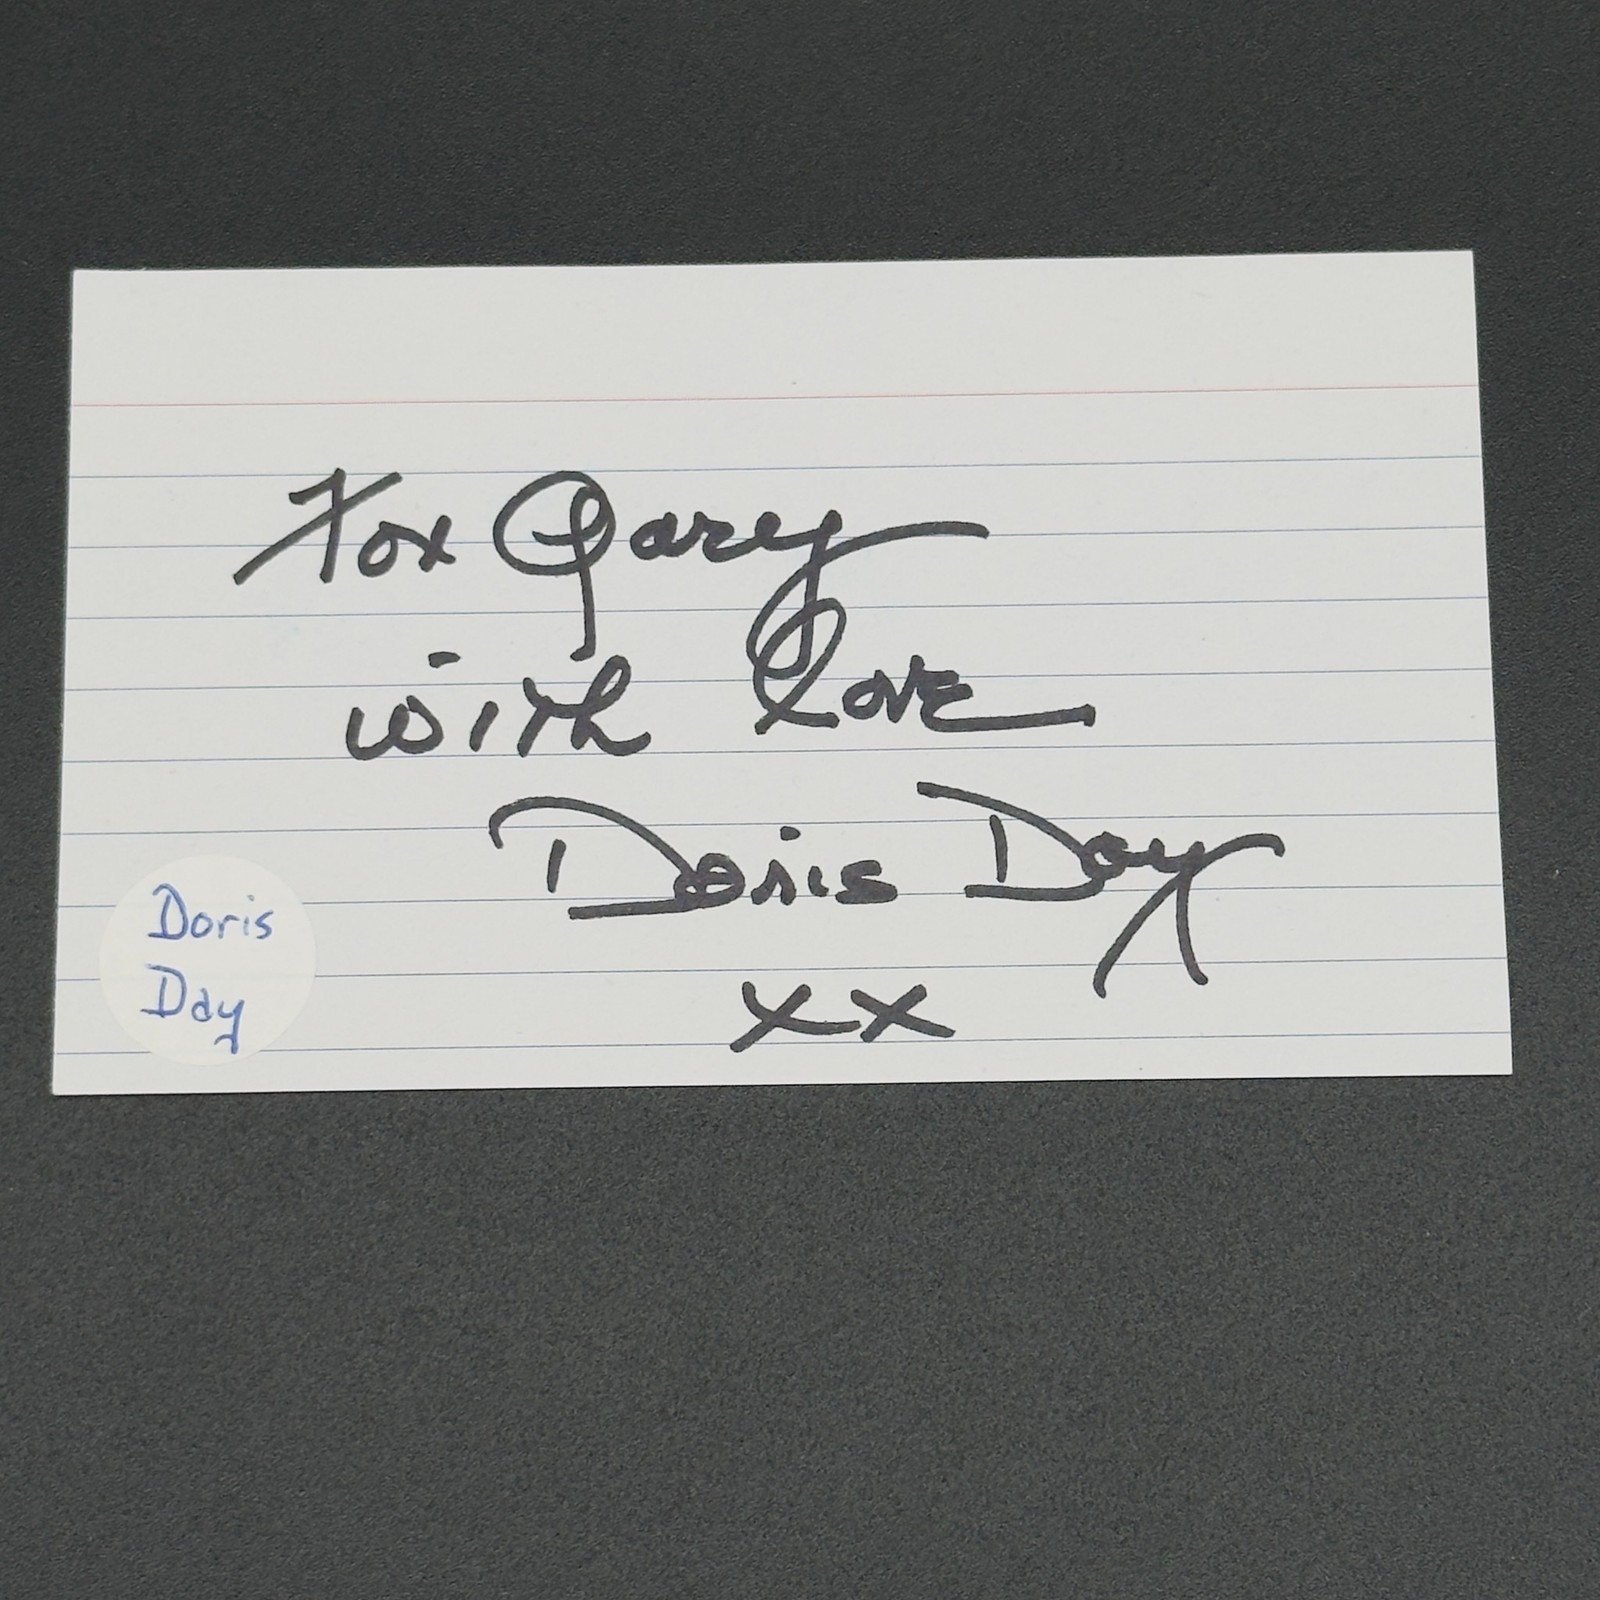 For Gary
with love
Doris Day
xx
Doris
Day